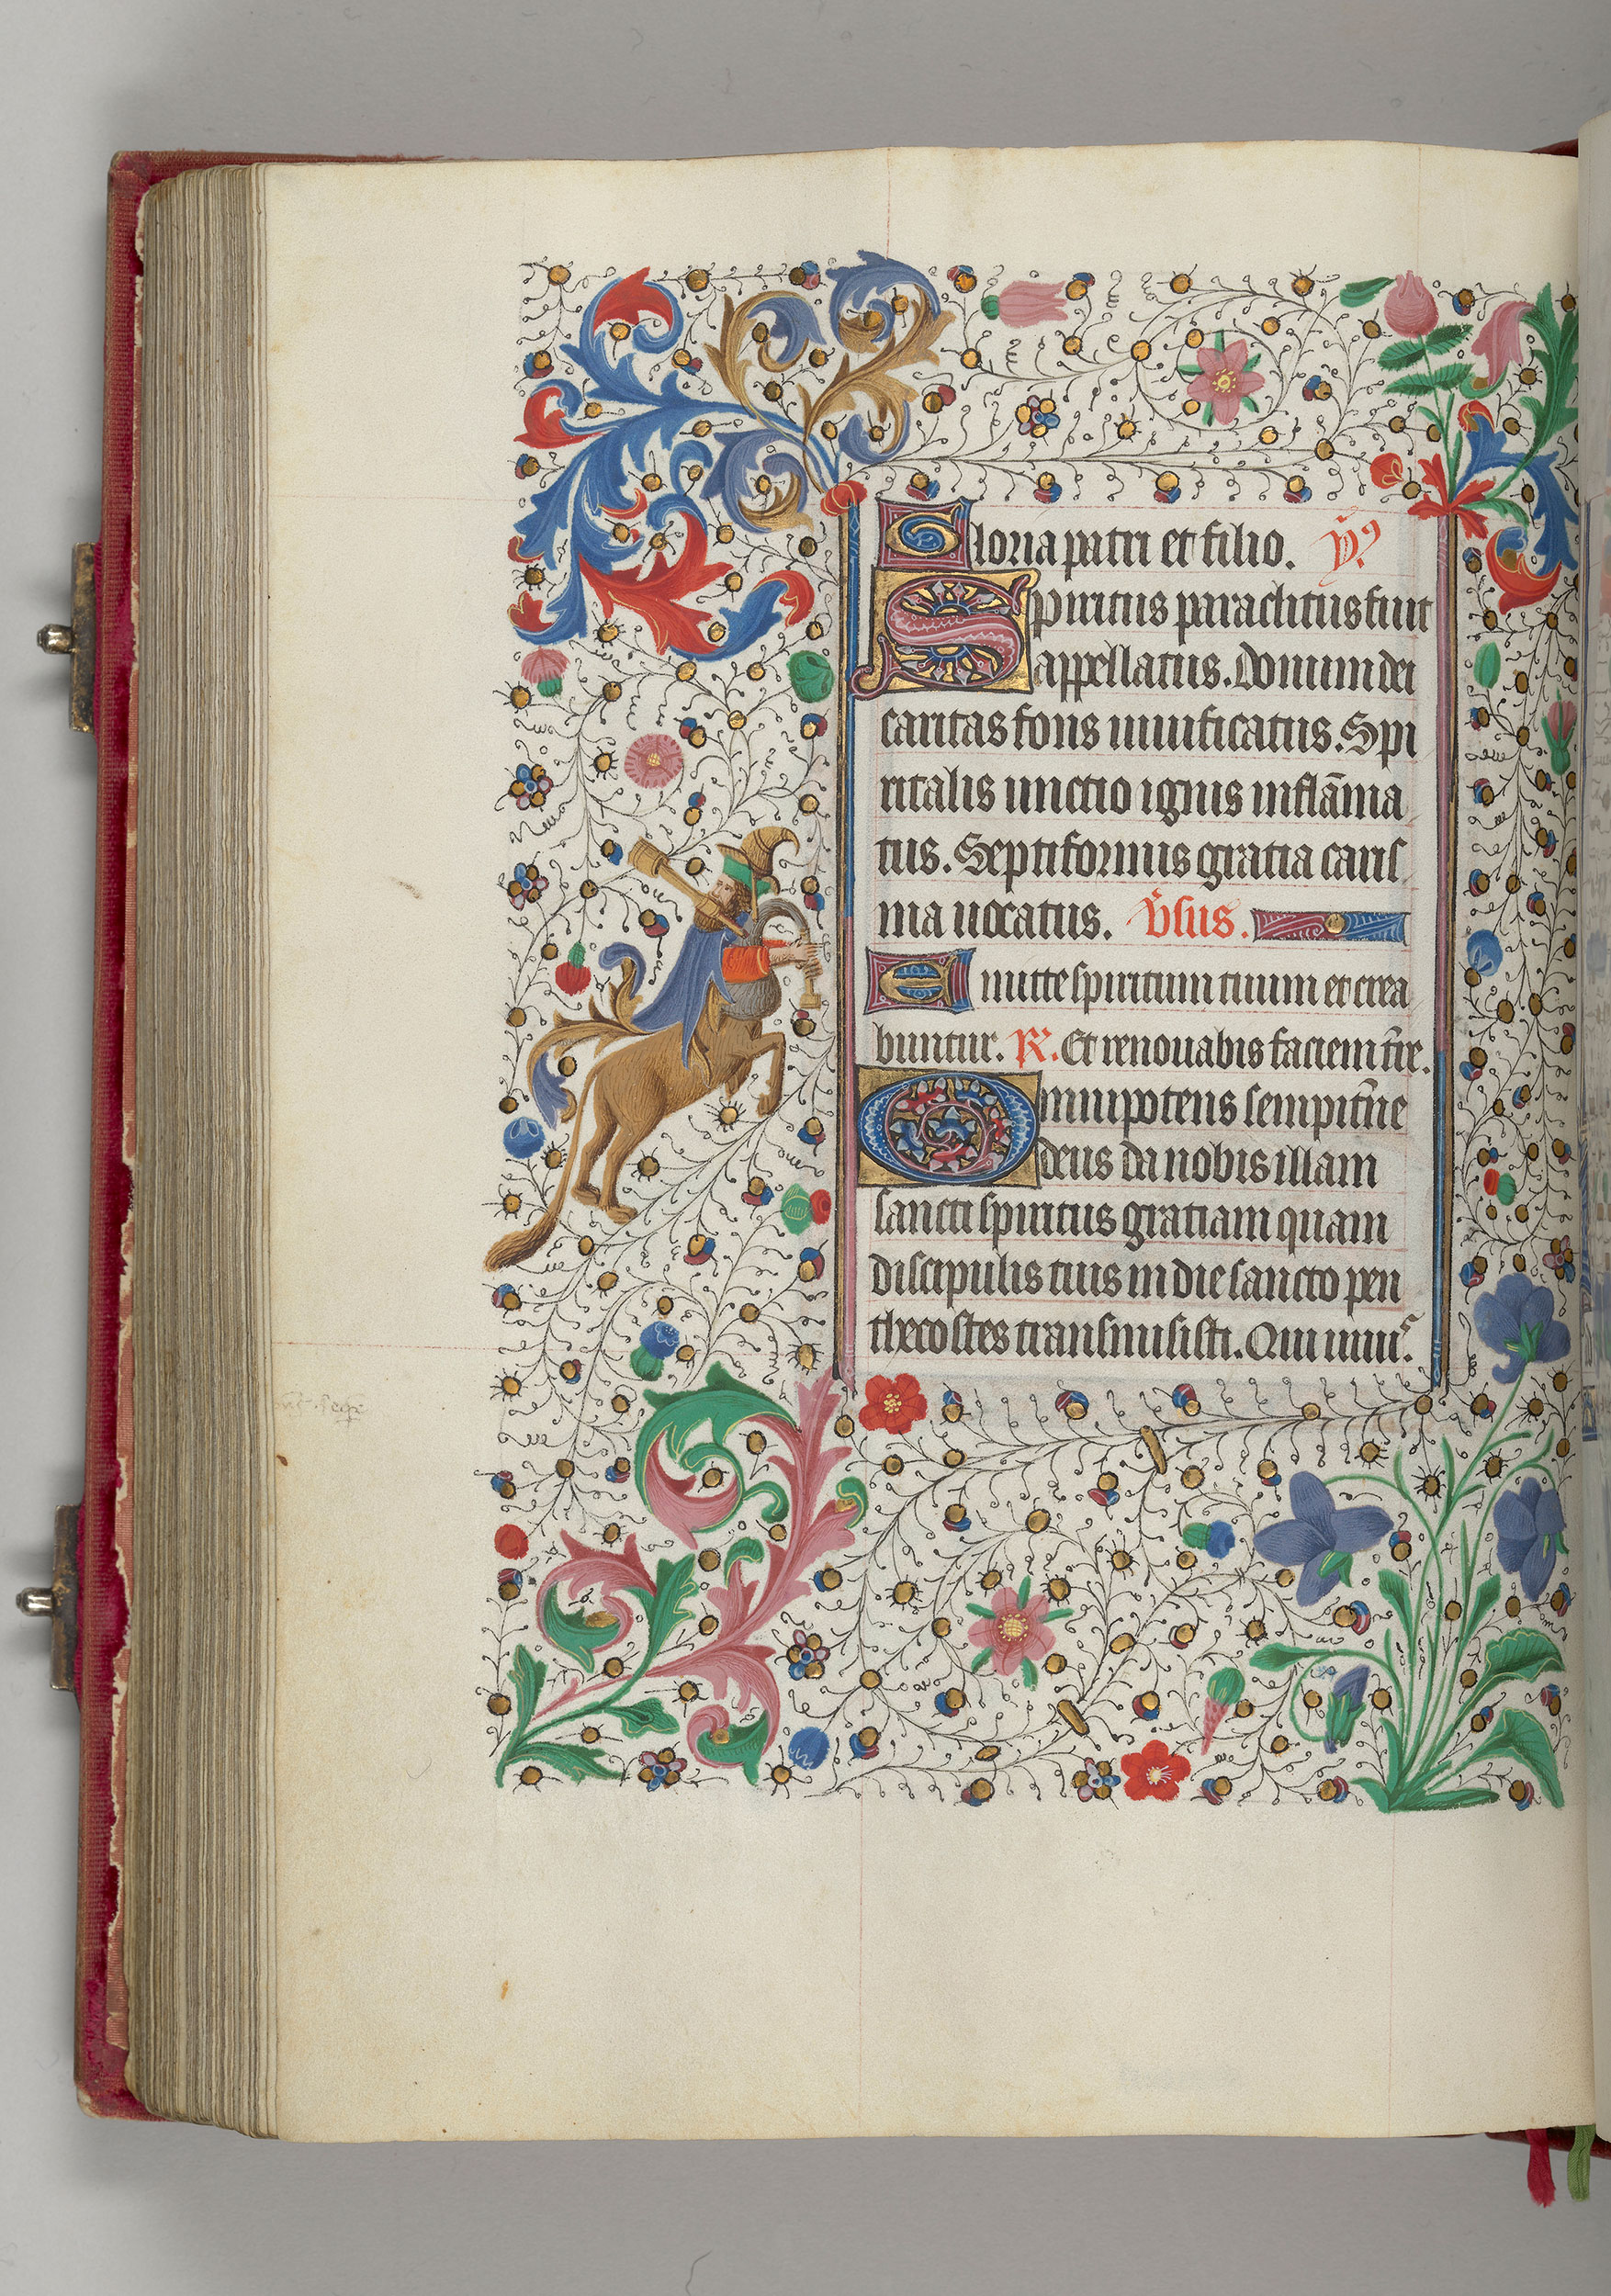 Gloria patri et filio. v̄9
Spiritus paraclitus fuit
appellatus. Donum dei
caritas fons uiuificatus. Spi
ritalis unctio ignis inflāma
tus. Septiformis gratia caris
ma uocatus. v̄sus.
Emitte spiritum tuum et crea
buntur. R̄. Et renouabis faciem t̄re.
Omnipotens sempit̄ne
deus da nobis illam
sancti spiritus gratiam quam
discipulis tuis in die sancto pen
thecostes transmisisti. Qui uiuis.